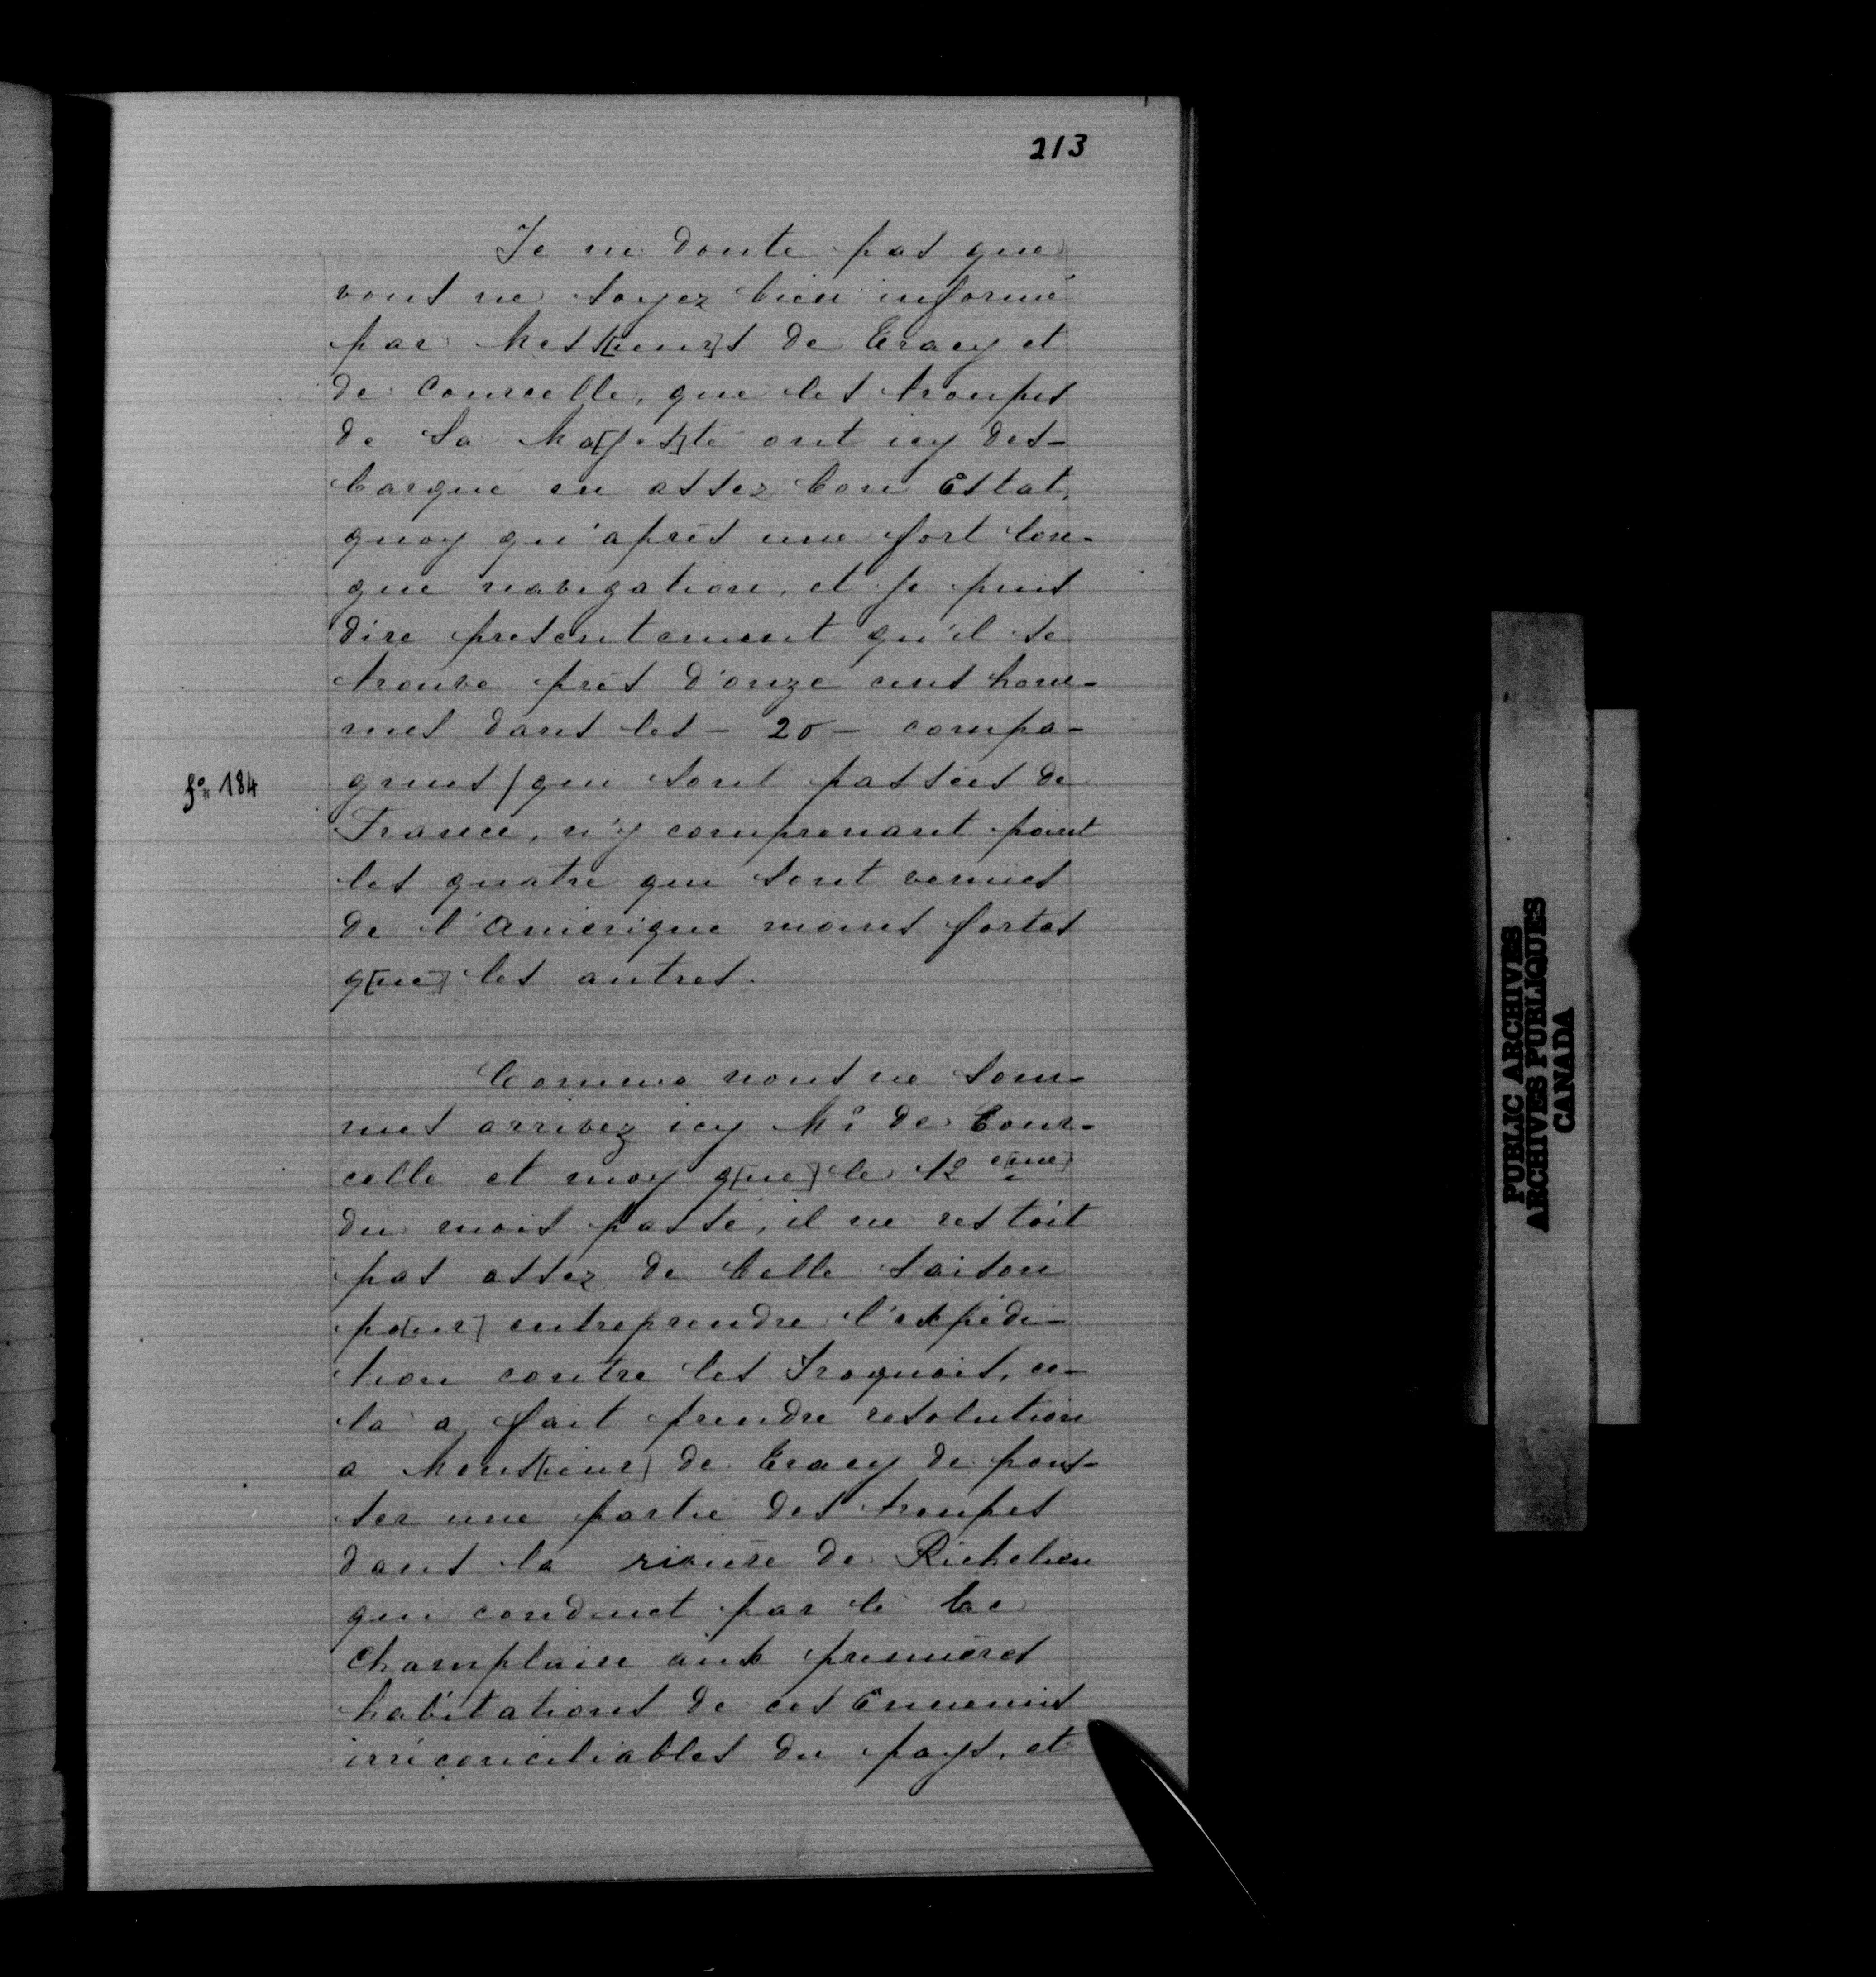 213
Je ne doute pas que
vous ne soyez bien informé
par Mess[ieur]s de Tracy et
de Courcelle, que les troupes
de Sa Ma[jes]té ont icy des-
barqué en assez bon Estat,
quoy qu'après une fort lon-
gue navigation, et je puis
dire presentement qu'il se
trouve près d'onze cens hom-
mes dans les - 20 - compa-
f° 184
gnies / qui sont passées de
France, n'y comprenant point
les quatre qui sont venües
de l'Amérique moins fortes
q[ue] les autres.
Comme nous ne som-
mes arrivez icy Mr de Cour-
celle et moy q[ue] le 12 e[me]
du mois passé, il ne restoit
pas assez de belle saison
po[ur] entreprendre l'expédi-
tion contre les Iroquois, ce-
la a fait prendre resolution
a Mons[ieur] de Tracy de pous-
ser une partie des troupes
dans la rivière de Richelieu
qui conduict par le lac
Champlain aux premières
habitations de ces Ennemis
irréconciliables du pays, et
PUBLIC ARCHIVES
ARCHIVES PUBLIQUES
CANADA